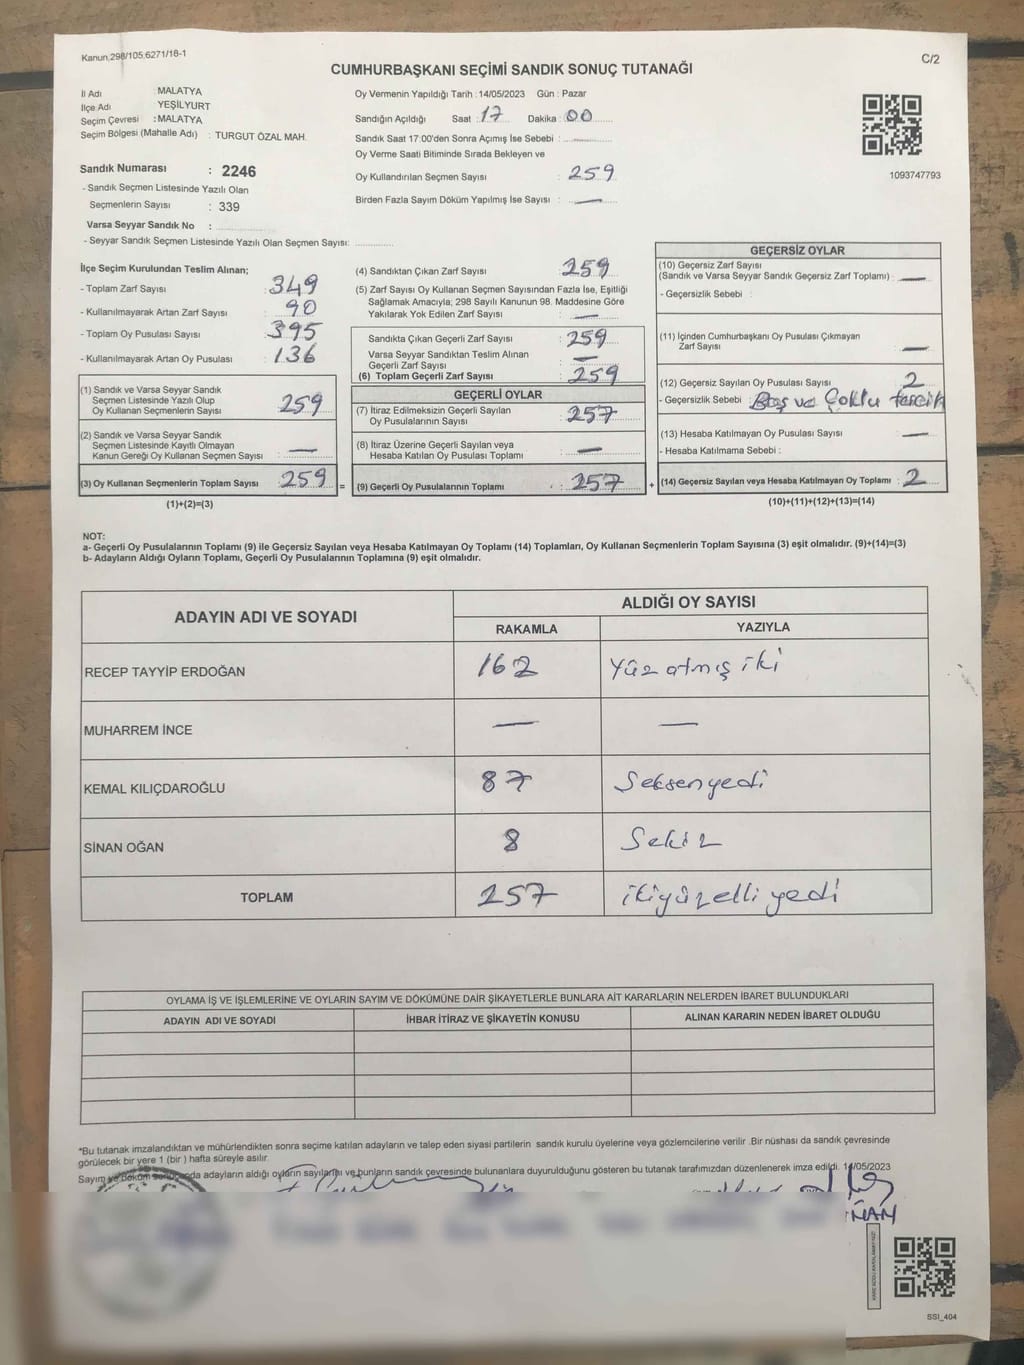 Kanun,298/105;6271/18-1
C/2
CUMHURBAŞKANI SEÇİMİ SANDIK SONUÇ TUTANAĞI
İl Adı MALATYA
İlçe Adı YEŞİLYURT
Seçim Çevresi : MALATYA
Seçim Bölgesi (Mahalle Adı) : TURGUT ÖZAL MAH.
Sandık Numarası : 2246
- Sandık Seçmen Listesinde Yazılı Olan
Seçmenlerin Sayısı : 339
Varsa Seyyar Sandık No :
- Seyyar Sandık Seçmen Listesinde Yazılı Olan Seçmen Sayısı:
Oy Vermenin Yapıldığı Tarih : 14/05/2023 Gün : Pazar
Sandığın Açıldığı Saat : 17 Dakika : 00
Sandık Saat 17:00'den Sonra Açımış İse Sebebi :
Oy Verme Saati Bitiminde Sırada Bekleyen ve
Oy Kullandırılan Seçmen Sayısı : 259
Birden Fazla Sayım Döküm Yapılmış İse Sayısı : —
1093747793
İlçe Seçim Kurulundan Teslim Alınan;
- Toplam Zarf Sayısı : 349
- Kullanılmayarak Artan Zarf Sayısı : 90
- Toplam Oy Pusulası Sayısı : 395
- Kullanılmayarak Artan Oy Pusulası : 136
(1) Sandık ve Varsa Seyyar Sandık
Seçmen Listesinde Yazılı Olup
Oy Kullanan Seçmenlerin Sayısı : 259
(2) Sandık ve Varsa Seyyar Sandık
Seçmen Listesinde Kayıtlı Olmayan
Kanun Gereği Oy Kullanan Seçmen Sayısı : —
(3) Oy Kullanan Seçmenlerin Toplam Sayısı : 259 =
(1)+(2)=(3)
(4) Sandıktan Çıkan Zarf Sayısı : 259
(5) Zarf Sayısı Oy Kullanan Seçmen Sayısından Fazla İse, Eşitliği
Sağlamak Amacıyla; 298 Sayılı Kanunun 98. Maddesine Göre
Yakılarak Yok Edilen Zarf Sayısı : —
Sandıkta Çıkan Geçerli Zarf Sayısı : 259
Varsa Seyyar Sandıktan Teslim Alınan
Geçerli Zarf Sayısı : —
(6) Toplam Geçerli Zarf Sayısı : 259
GEÇERLİ OYLAR
(7) İtiraz Edilmeksizin Geçerli Sayılan
Oy Pusulalarının Sayısı : 257
(8) İtiraz Üzerine Geçerli Sayılan veya
Hesaba Katılan Oy Pusulası Toplamı : —
(9) Geçerli Oy Pusulalarının Toplamı : 257 +
GEÇERSİZ OYLAR
(10) Geçersiz Zarf Sayısı
(Sandık ve Varsa Seyyar Sandık Geçersiz Zarf Toplamı) : —
- Geçersizlik Sebebi :
(11) İçinden Cumhurbaşkanı Oy Pusulası Çıkmayan
Zarf Sayısı : —
(12) Geçersiz Sayılan Oy Pusulası Sayısı : 2
- Geçersizlik Sebebi : Boş ve Çoklu tercih
(13) Hesaba Katılmayan Oy Pusulası Sayısı : —
- Hesaba Katılmama Sebebi :
(14) Geçersiz Sayılan veya Hesaba Katılmayan Oy Toplamı : 2
(10)+(11)+(12)+(13)=(14)
NOT:
a- Geçerli Oy Pusulalarının Toplamı (9) ile Geçersiz Sayılan veya Hesaba Katılmayan Oy Toplamı (14) Toplamları, Oy Kullanan Seçmenlerin Toplam Sayısına (3) eşit olmalıdır. (9)+(14)=(3)
b- Adayların Aldığı Oyların Toplamı, Geçerli Oy Pusulalarının Toplamına (9) eşit olmalıdır.
ADAYIN ADI VE SOYADI
ALDIĞI OY SAYISI
RAKAMLA YAZIYLA
RECEP TAYYİP ERDOĞAN 162 Yüz atmış iki
MUHARREM İNCE — —
KEMAL KILIÇDAROĞLU 87 Seksenyedi
SİNAN OĞAN 8 Sekiz
TOPLAM 257 ikiyüzelli yedi
OYLAMA İŞ VE İŞLEMLERİNE VE OYLARIN SAYIM VE DÖKÜMÜNE DAİR ŞİKAYETLERLE BUNLARA AİT KARARLARIN NELERDEN İBARET BULUNDUKLARI
ADAYIN ADI VE SOYADI İHBAR İTİRAZ VE ŞİKAYETİN KONUSU ALINAN KARARIN NEDEN İBARET OLDUĞU
*Bu tutanak imzalandıktan ve mühürlendikten sonra seçime katılan adayların ve talep eden siyasi partilerin sandık kurulu üyelerine veya gözlemcilerine verilir .Bir nüshası da sandık çevresinde
görülecek bir yere 1 (bir ) hafta süreyle asılır.
Sayım ve döküm sonunda adayların aldığı oyların sayılarını ve bunların sandık çevresinde bulunanlara duyurulduğunu gösteren bu tutanak tarafımızdan düzenlenerek imza edildi. 14/05/2023
SSI_404